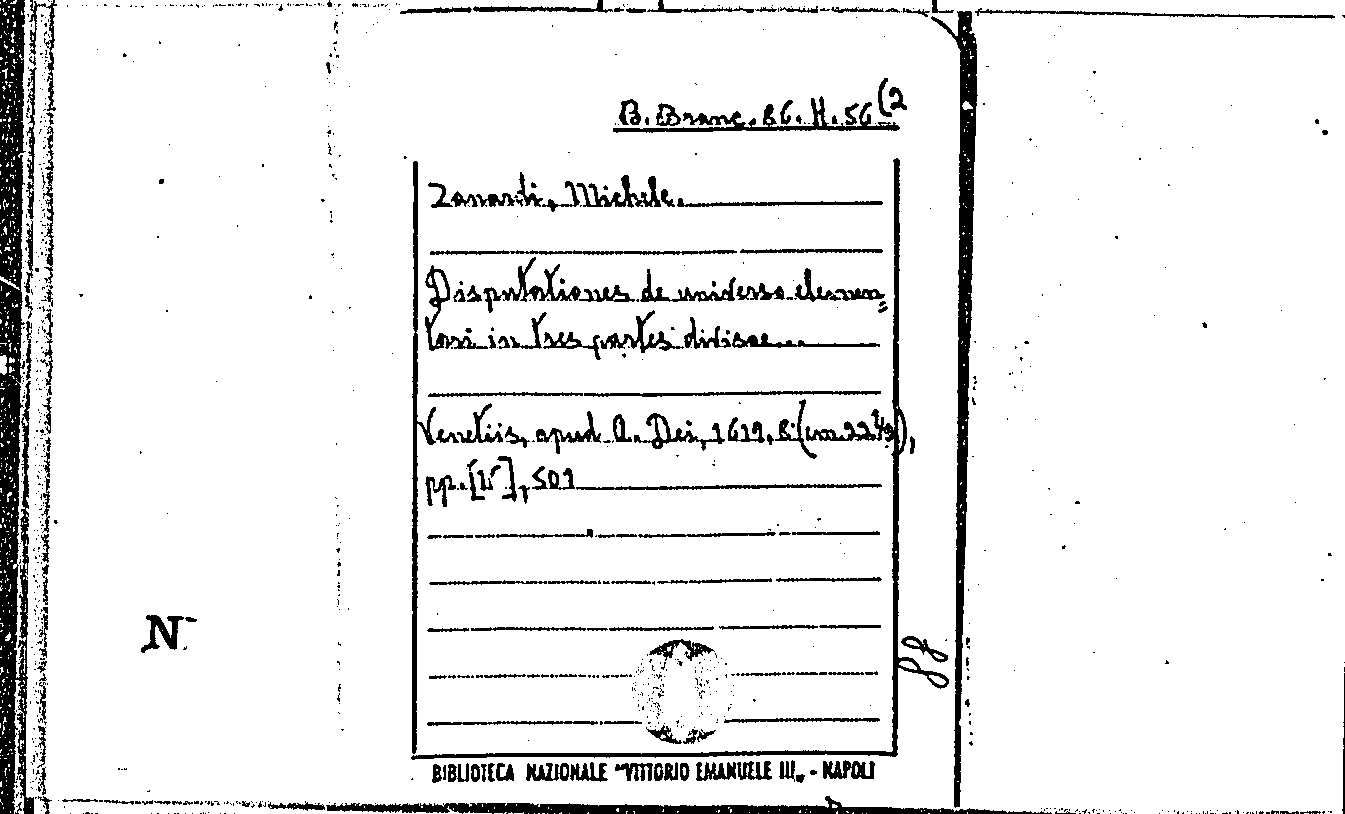 B. Branc. 86. H. 56 (2
Zanardi, Michele.
Disputationes de universo elemen=
tari in tres partes divisae...
Venetiis, apud A. Dei, 1619, 8° (cm 22 ½),
pp. [15], 501
N
BIBLIOTECA NAZIONALE "VITTORIO EMANUELE III„ - NAPOLI